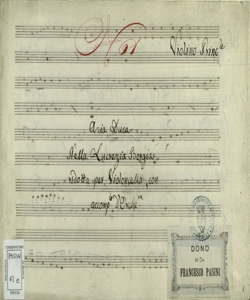 No 1
Violino Princ.le
Aria Duca
Nella Lucrezia Borgia,
ridotta per Violoncello, con
accomp.to d'Orch.a
DONO
FRANCESCO PASINI